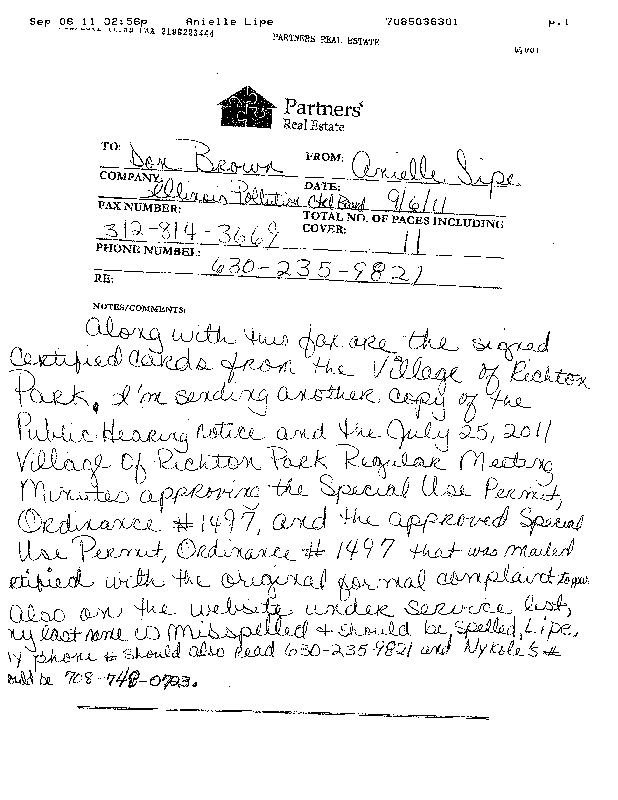 Sep 06 11 02:56p Anielle Lipe 7085036301 p.1
2198223444
PARTNERS REAL ESTATE
Partners'
Real Estate
TO: Don Brown FROM: Anielle Lipe
COMPANY: Illinois Pollution Ctrl Board DATE: 9/6/11
FAX NUMBER: 312-814-3669 TOTAL NO. OF PAGES INCLUDING COVER: 11
PHONE NUMBER: 630-235-9821
RE:
NOTES/COMMENTS:
Along with this fax are the signed
certified cards from the Village of Richton
Park. I'm sending another copy of the
Public Hearing notice and the July 25, 2011
Village Of Richton Park Regular Meeting
Minutes approving the Special Use Permit,
Ordinance #1497, and the approved Special
Use Permit, Ordinance # 1497 that was mailed
rtified with the original formal complaint to you.
Also on the website under service list,
my last name is misspelled + should be spelled, Lipe.
y phone # should also read 630-235-9821 and Nykole's #
ould be 708-748-0723.